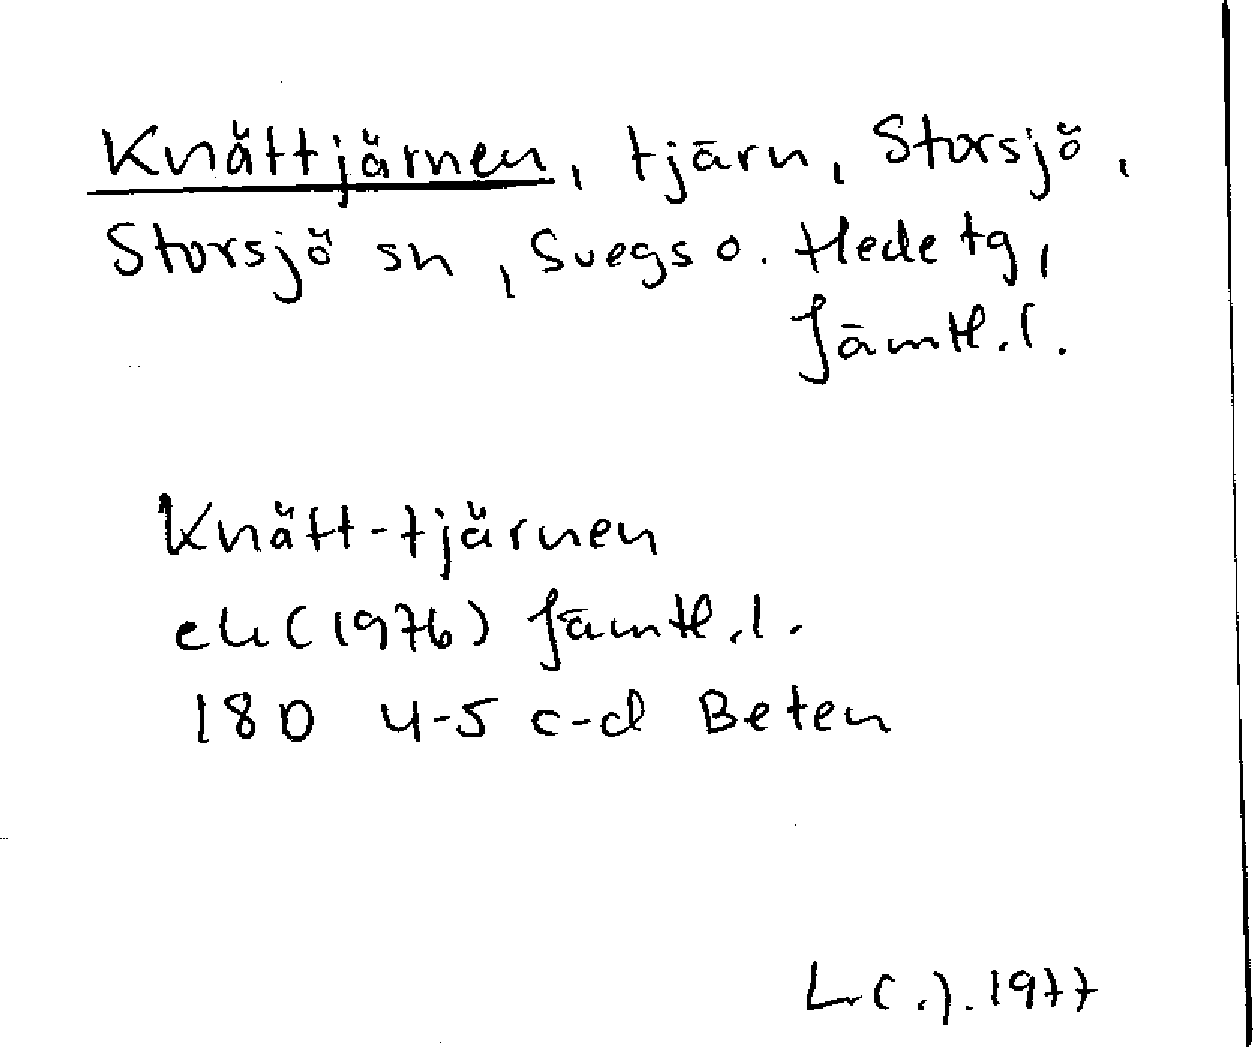 Knättjärnen, tjärn, Storsjö,
Storsjö sn, Svegs o. Hede tg,
Jämtl. l.
Knätt-tjärnen
ek (1976) Jämtl. l.
180 4-5 c-d Beten
1977